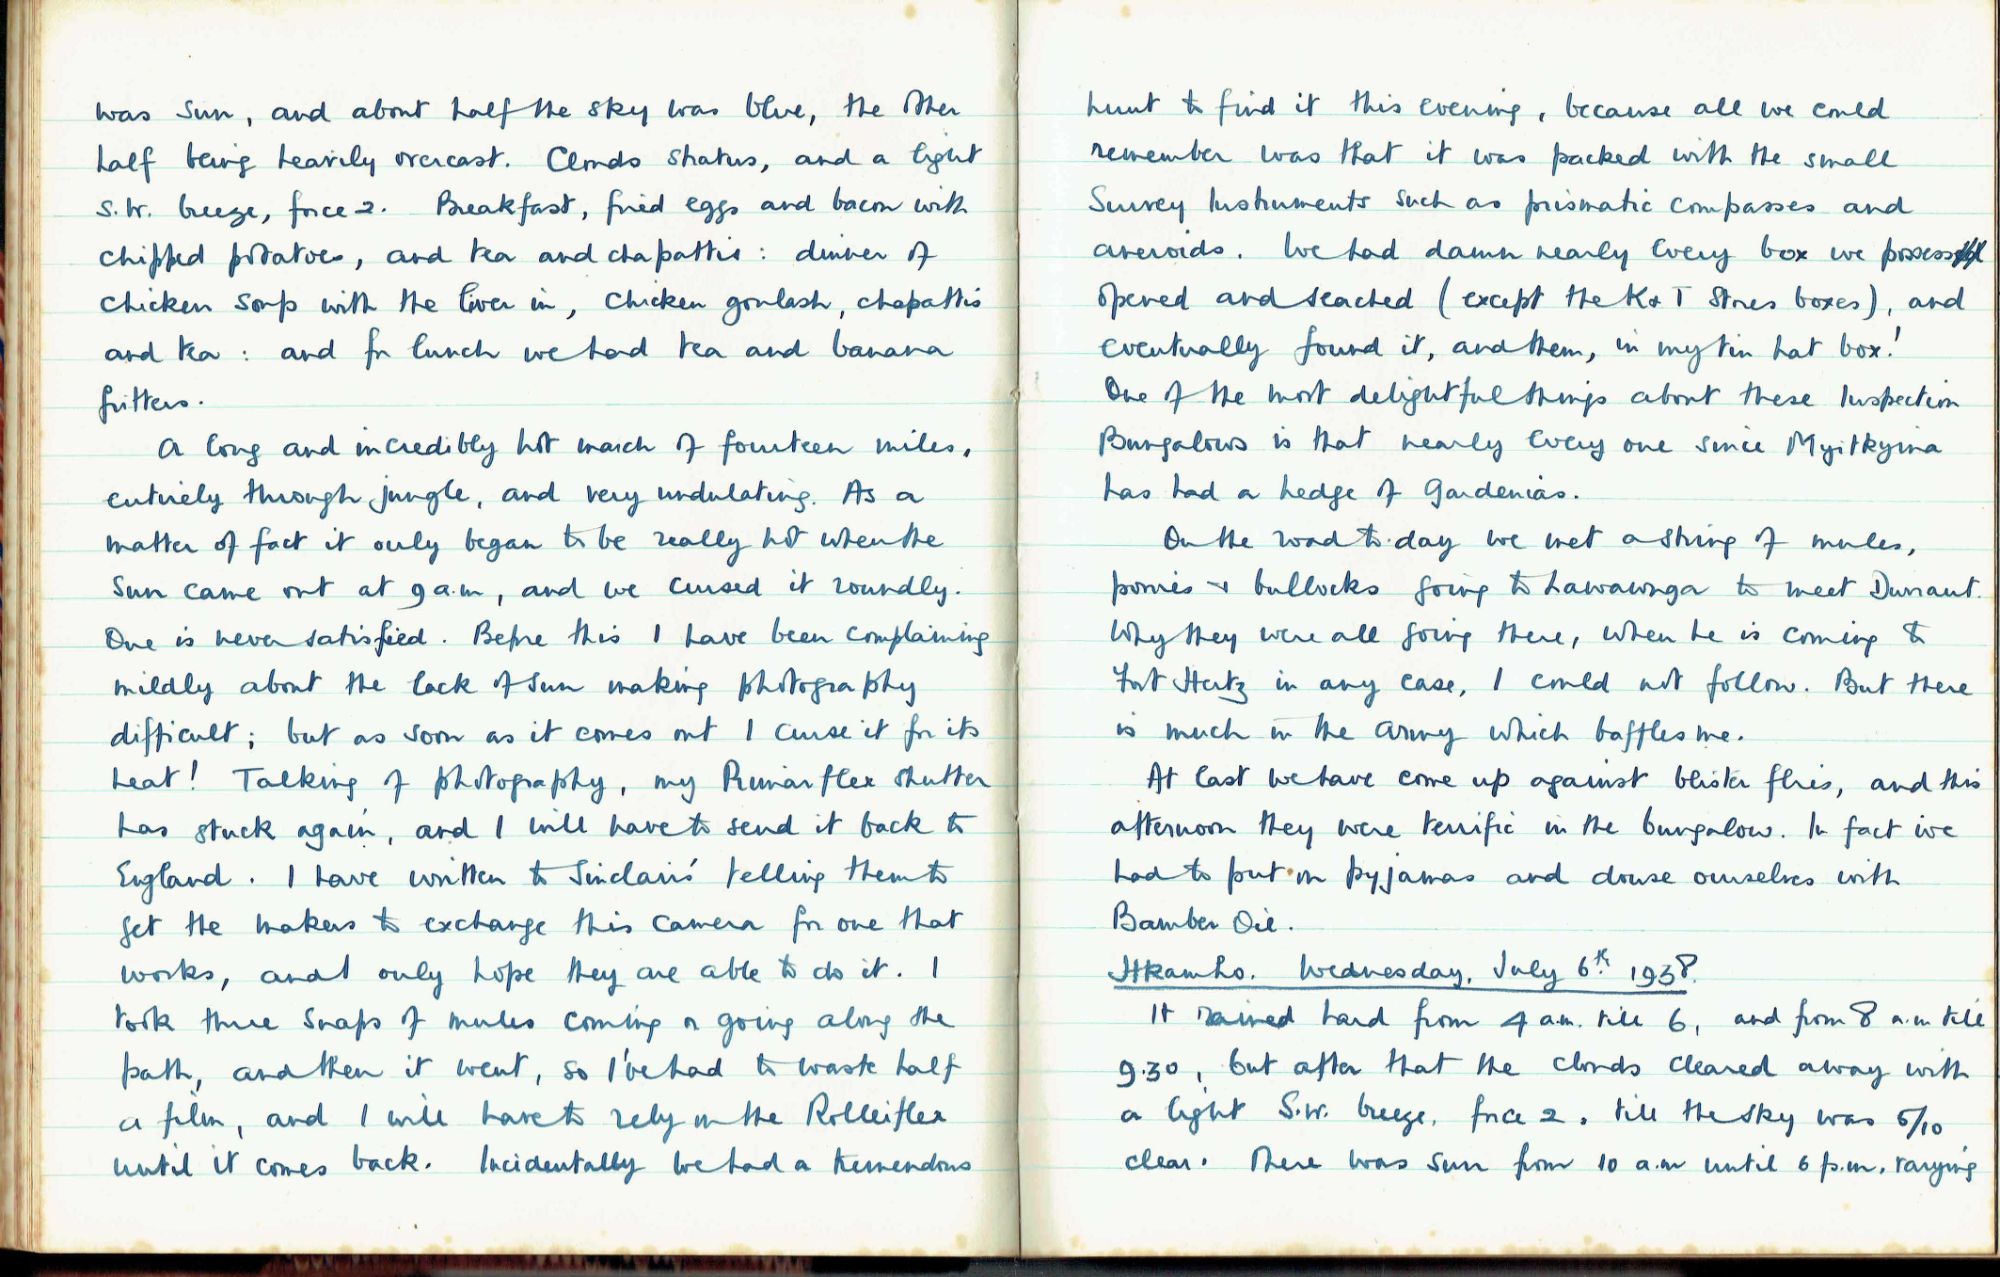 was sun, and about half the sky was blue, the other
half being heavily overcast. Clouds stratus, and a light
S.W. breeze, force 2. Breakfast, fried eggs and bacon with
chipped potatoes, and tea and chapattis: dinner of
chicken soup with the liver in, chicken goulash, chapattis
and tea: and for lunch we had tea and banana
fritters.
A long and incredibly hot march of fourteen miles,
entirely through jungle, and very undulating. As a
matter of fact it only began to be really hot when the
sun came out at 9 a.m, and we cursed it roundly.
One is never satisfied. Before this I have been complaining
mildly about the lack of sun making photography
difficult; but as soon as it comes out I curse it for its
heat! Talking of photography, my Primarflex shutter
has stuck again, and I will have to send it back to
England. I have written to Sinclairs' telling them to
get the makers to exchange this camera for one that
works, and I only hope they are able to do it. I
took three snaps of mules coming or going along the
path, and then it went, so I've had to waste half
a film, and I will have to rely on the Rolleiflex
until it comes back. Incidentally we had a tremendous
hunt to find it this evening, because all we could
remember was that it was packed with the small
Survey Instruments such as prismatic compasses and
aneroids. We had damn nearly every box we possess
opened and seached (except the K & T Stores boxes), and
eventually found it, and them, in my tin hat box!
One of the most delightful things about these Inspection
Bungalows is that nearly every one since Myitkyina
has had a hedge of Gardenias.
On the road to-day we met a string of mules,
ponies & bullocks going to Lawawnga to meet Durrant.
Why they were all going there, when he is coming to
Fort Hertz in any case, I could not follow. But there
is much in the Army which baffles me.
At last we have come up against blister flies, and this
afternoon they were terrific in the bungalow. In fact we
had to put on pyjamas and douse ourselves with
Bamber Oil.
Hkamho. Wednesday, July 6th 1938.
It rained hard from 4 a.m. till 6, and from 8 a.m till
9.30, but after that the clouds cleared away with
a light S.W. breeze, force 2, till the sky was 5/10
clear. There was sun from 10 a.m until 6 p.m. varying